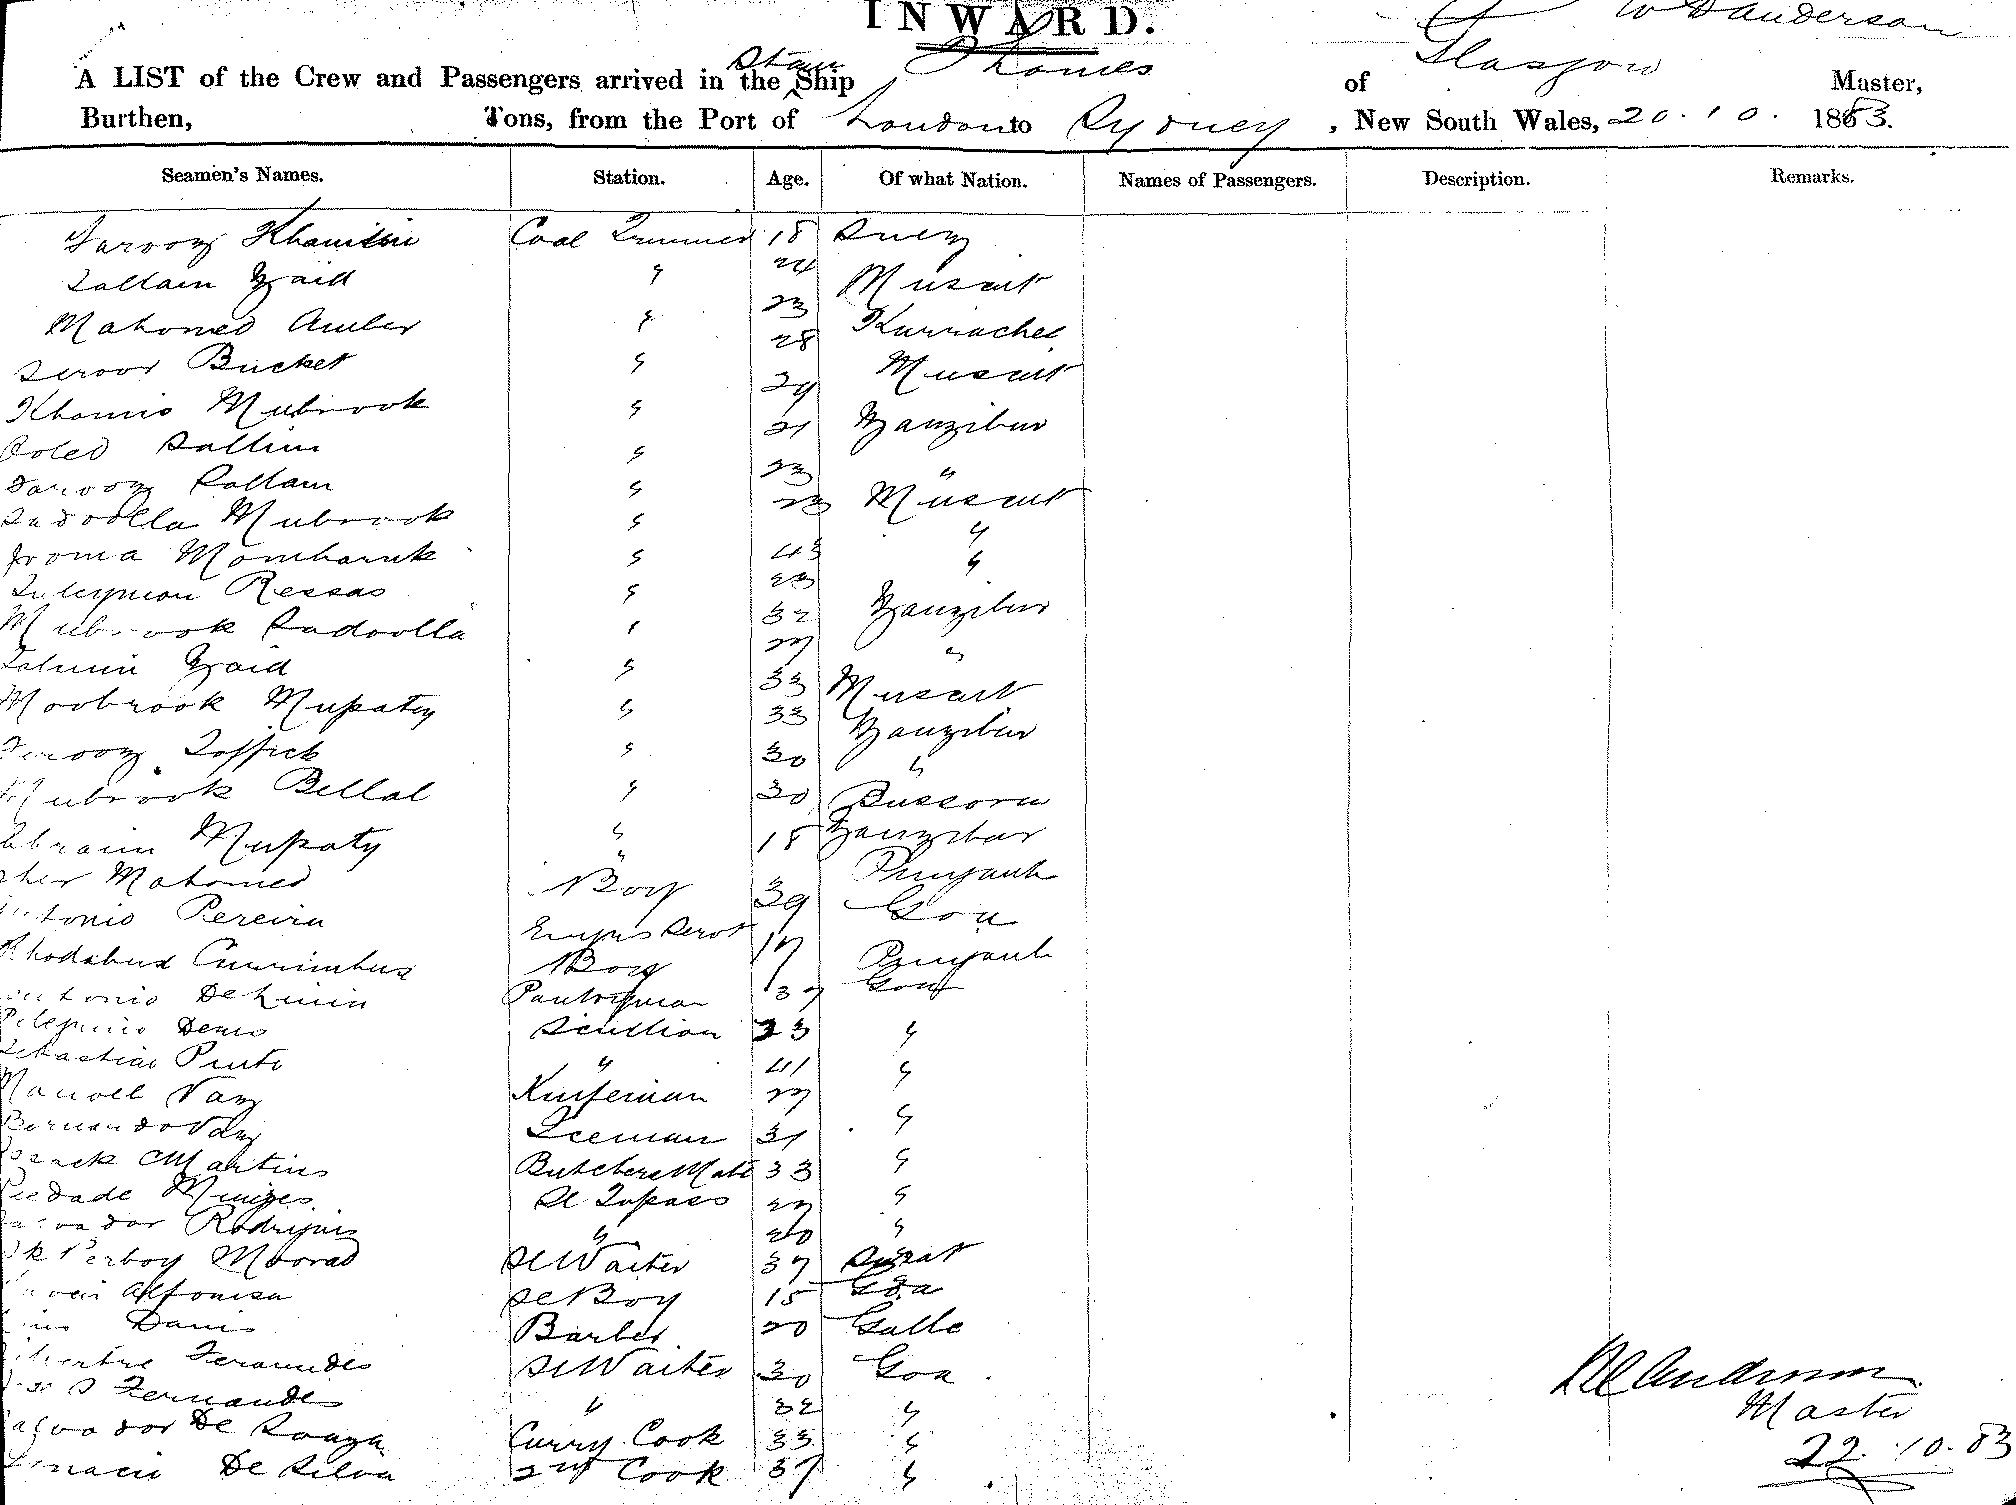 INWARD.
W D Anderson
A LIST of the Crew and Passengers arrived in the Steam Ship Thames of Glasgow Master,
Burthen, Tons, from the Port of London to Sydney, New South Wales, 20.10.1883.
Seamen's Names. Station. Age. Of what Nation. Names of Passengers. Description. Remarks.
Farooz Khamisin Coal Trimmer 18 Suez
Sallam Zaid " 24 Muscat
Mahomed Amber " 23 Kurrachee
Seroor Bucket " 28 Muscat
Khamis Mubrook " 29 Zanzibar
Sallim " 21 "
Farooz Sallam " 23 Muscat
Sadoolla Mubrook " 23 "
Jooma Mombaruk " 43 "
Suleyman Ressas " 23 Zanzibar
Mubrook Sadoolla " 32 "
Salmin Zaid " 27 Muscat
Moobrook Mupaty " 33 Zanzibar
Ferooz Toffick " 33 "
Mubrook Bellal " 30 Bussora
Abraim Mupaty " 30 Zanzibar
Sher Mahomed " 18 Punjaub
Antonio Pereira Boy 39 Goa
Khodabux Currimbux Engrs Servt 17 Punjaub
Antonio De Lima Boy Goa
Pantryman 37
Scullion 23 "
Sebastiao Pinto " 41 "
Manoel Vaz Knifeman 27
Bernando Vaz Iceman 31 "
Issack Martins Butchers Mate 33 "
Piedade Minizes Sl Topass 27 "
Salvador Rodriques " 20 "
Moorad Sl Waiter 37 Surat
Alfonisa Sl Boy 15 Goa
Barber 20 Galle
Fernandes Sl Waiter 30 Goa
Fernandes " 32 "
Salvador De Souza Curry Cook 33 "
Ignacio De Silva 2nd Cook 37 "
W D Anderson
Master
22.10.83